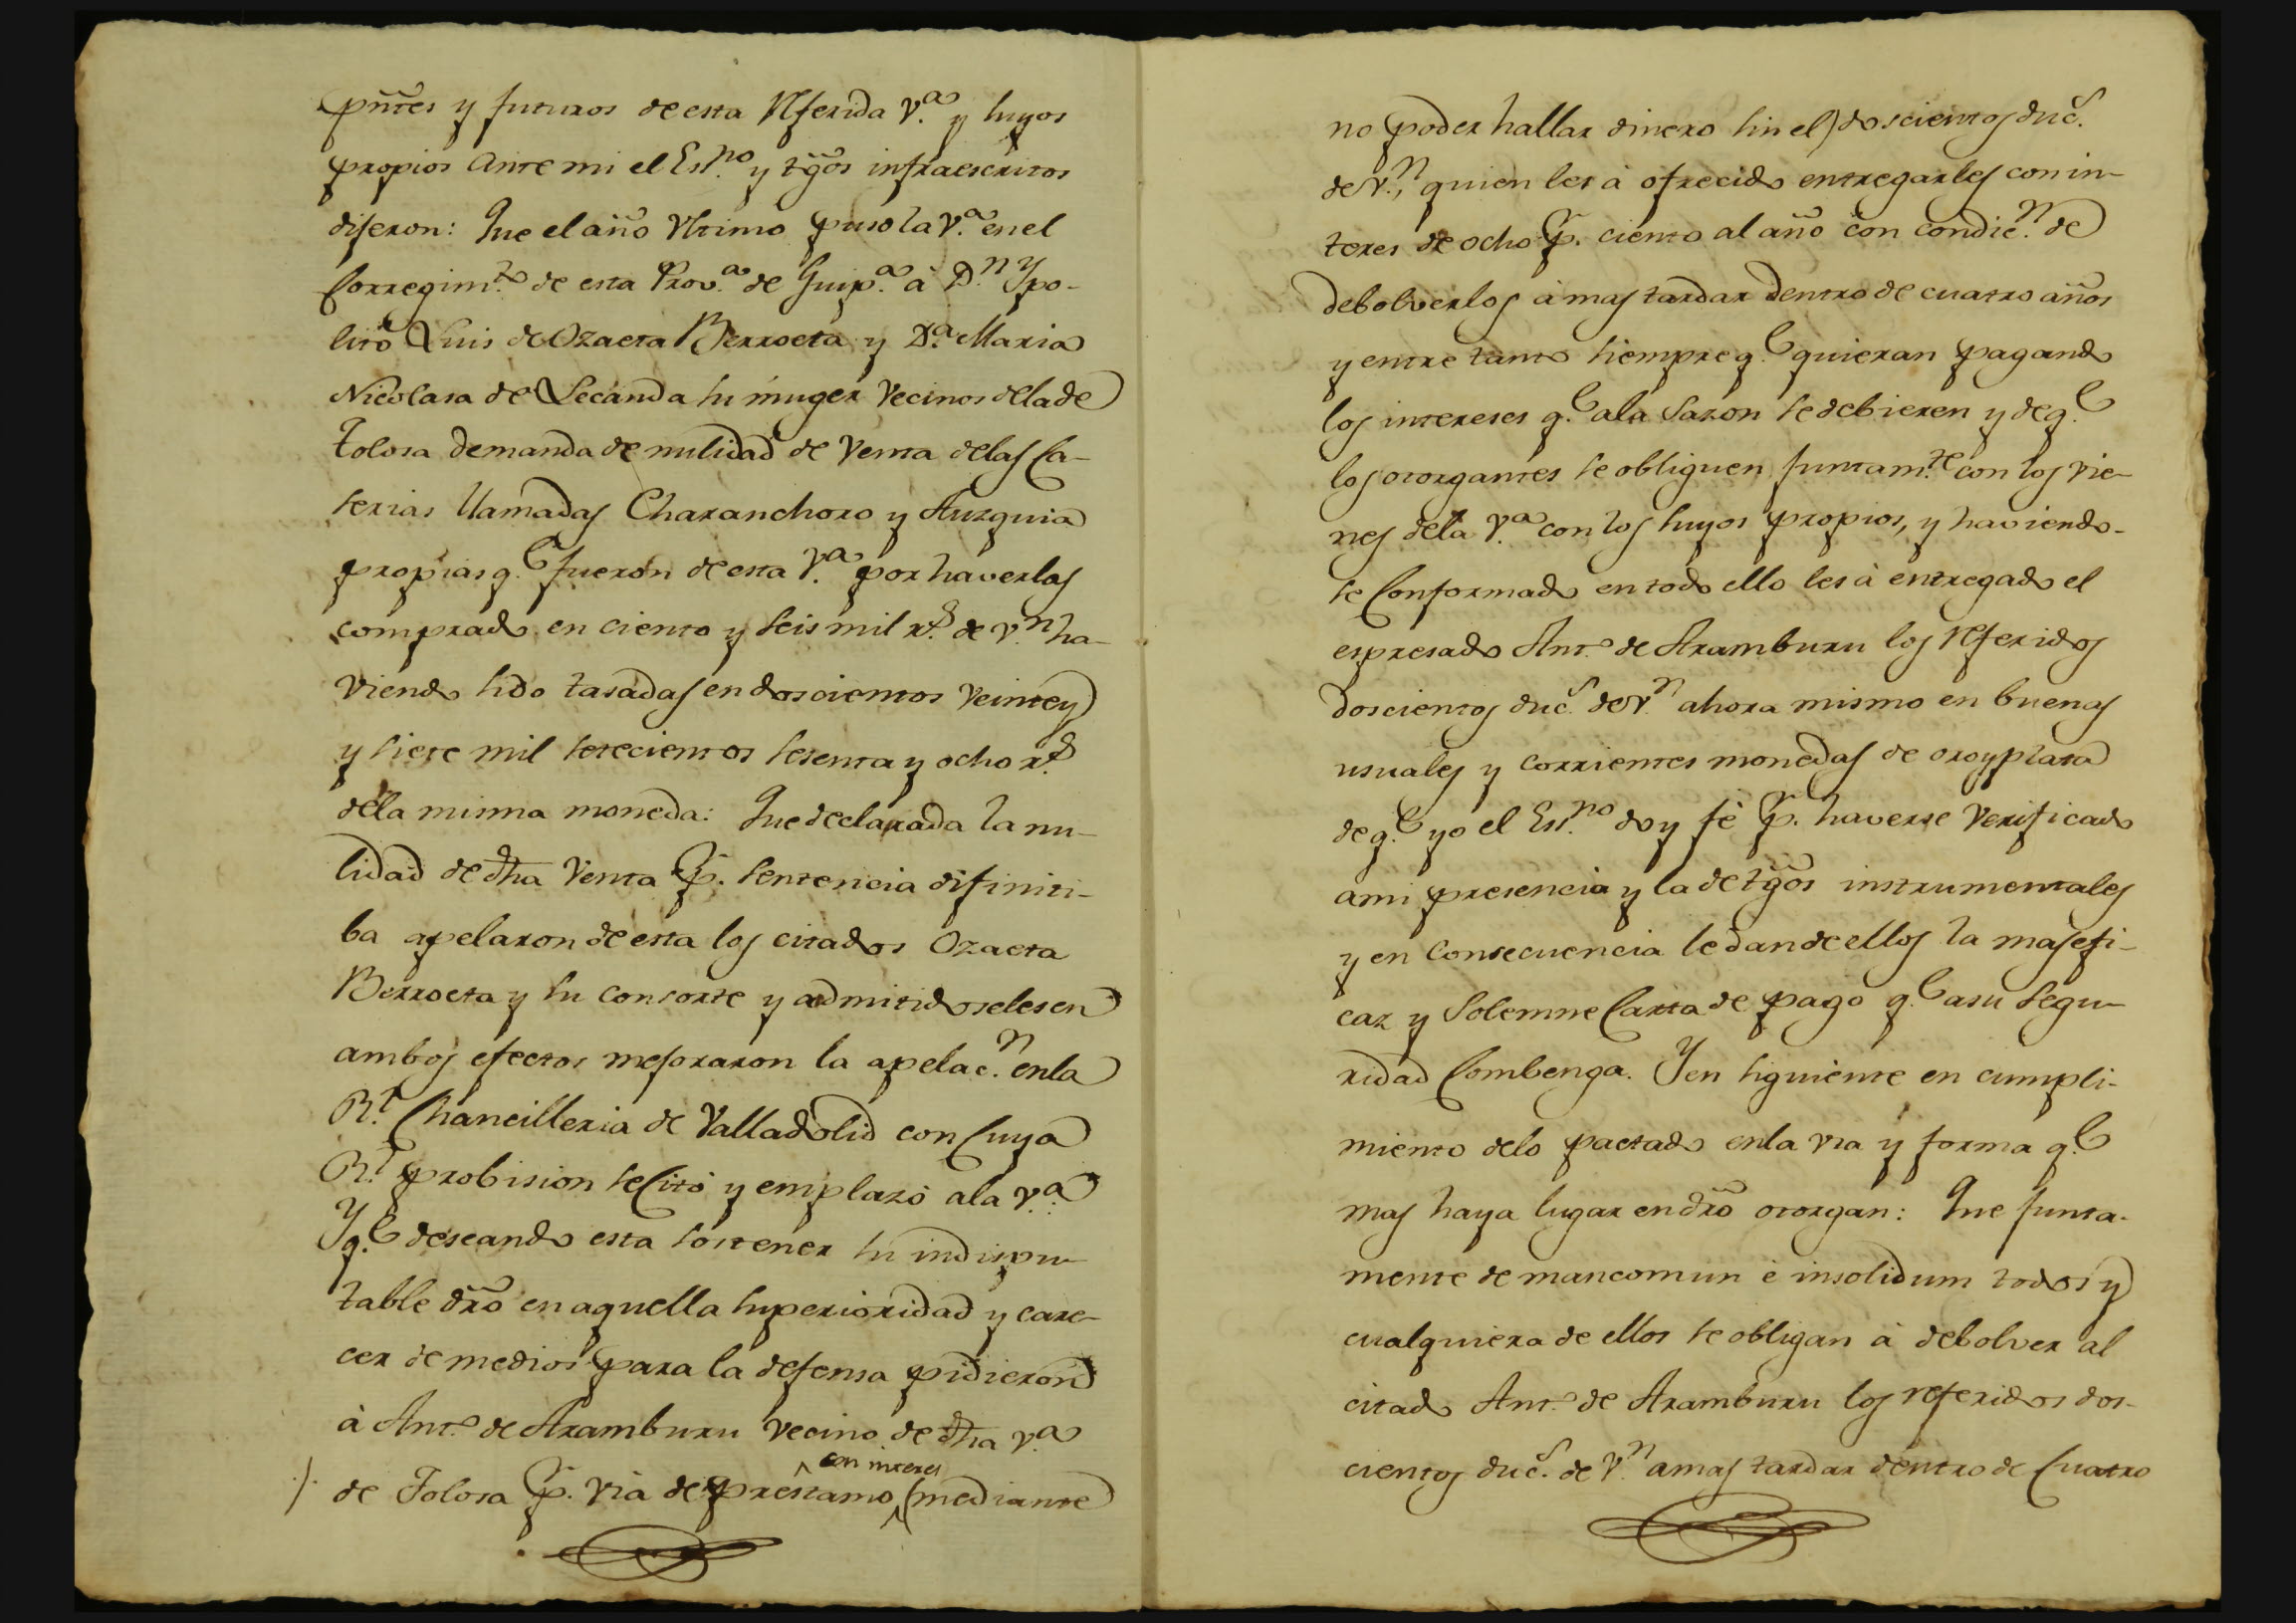 pñtes y futuros de esta referida V.ª y suyos
propios ante mi el Ess.no y tg̃os infraescritos
dijeron: Que el año ultimo puso la V.ª en el
Corregim.to de esta Prov.ª de Guip.ª à D.n Ypo-
lito Luis de Ozaeta Berroeta y D.ª Maria
Nicolasa de Lecanda su muger vecinos de la de
Tolosa demanda de nulidad de venta de las Ca-
serias llamadas Charanchoro y Auzguia
propias q.e fueron de esta V.ª por haverlas
comprado en ciento y seis mil r.s de v.n ha-
viendo sido tasadas en doscientos veinte y
y siete mil setecientos sesenta y ocho r.s
de la misma moneda: Que declarada la nu-
lidad de dha venta p.r sentencia difiniti-
ba apelaron de esta los citados Ozaeta
Berroeta y su consorte y admitidoseles en
ambos efectos mejoraron la apelac.n en la
R.l Chancilleria de Valladolid con Cuya
R.l probision se Citò y emplazò a la V.ª
Y q.e deseando esta sostener su indispu-
table dr̃o en aquella superioridad y care-
cer de medios para la defensa pidieron
à Ant.o de Aramburu vecino de dha V.ª
de Tolosa p.r via de prestamo ^ con interes (mediante
no poder hallar dinero sin el) doscientos duc.s
de v.n, quien les à ofrecido entregarles con in-
teres de ocho p.r ciento al año con condic.n de
debolverlos à mas tardar dentro de cuatro años
y entre tanto siempre q.e quieran pagando
los intereses q.e a la sazon se debieren y de q.e
los otorgantes se obliguen juntam.te con los vie-
nes de la V.ª con los suyos propios, y haviendo-
se Conformado en todo ello les à entregado el
espresado Ant.o de Aramburu los referidos
doscientos duc.s de v.n ahora mismo en buenas
usuales y corrientes monedas de oro y plata
de q.e yo el Ess.no doy fè p.r haverse verificado
a mi presencia y la de tg̃os instrumentales
y en Consecuencia le dan de ellos la mas efi-
caz y Solemne Carta de pago q.e a su segu-
ridad Combenga. Y en siguiente en cumpli-
miento de lo pactado en la via y forma q.e
mas haya lugar en dr̃o otorgan: Que junta-
mente de mancomun è insolidum todos y
cualquiera de ellos se obligan à debolver al
citado Ant.o de Aramburu los referidos dos-
cientos duc.s de v.n a mas tardar dentro de Cuatro